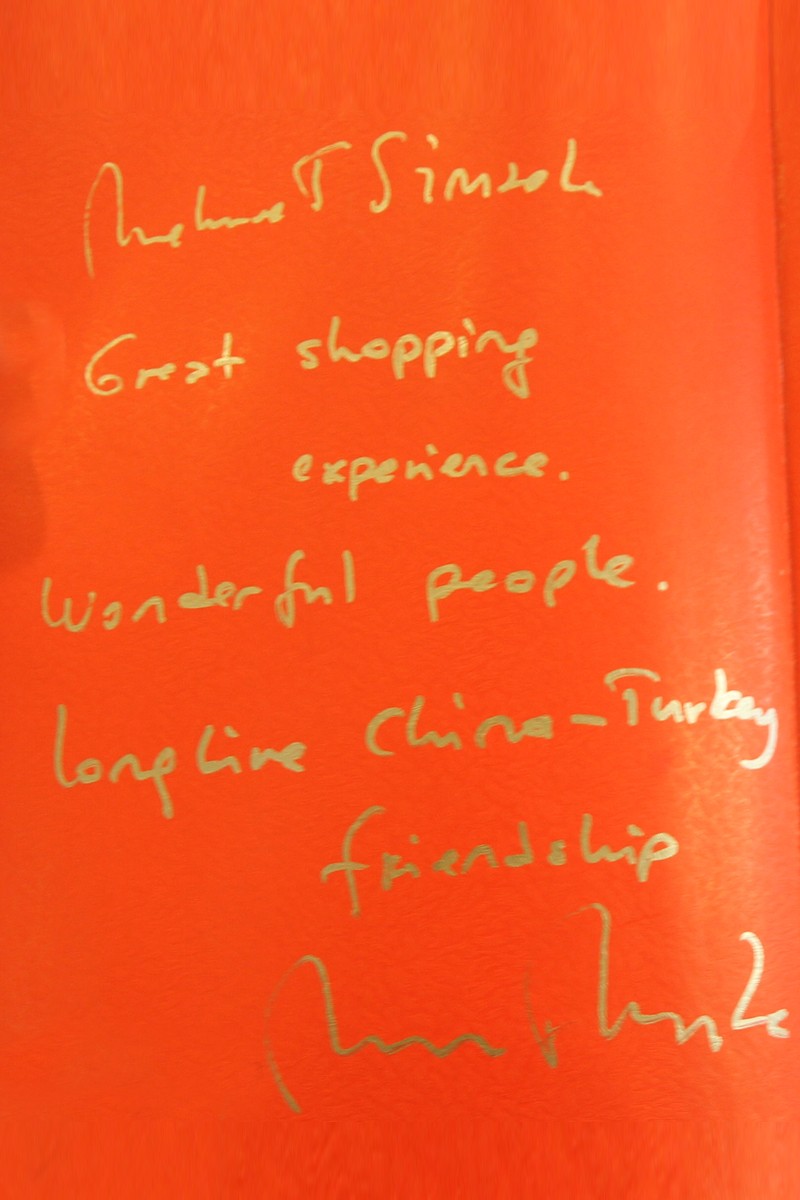 Mehmet Simsek
Great shopping
experience.
Wonderful people.
Longlive China-Turkey
friendship